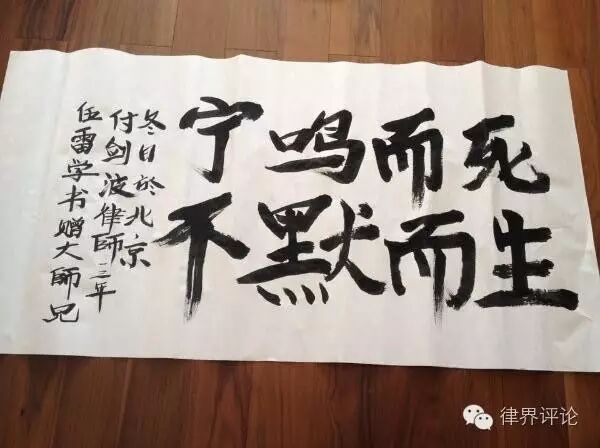 宁鸣而死
不默而生
伍雷学书赠大師兄
付剑波律師 年
冬日於北京
律界评论